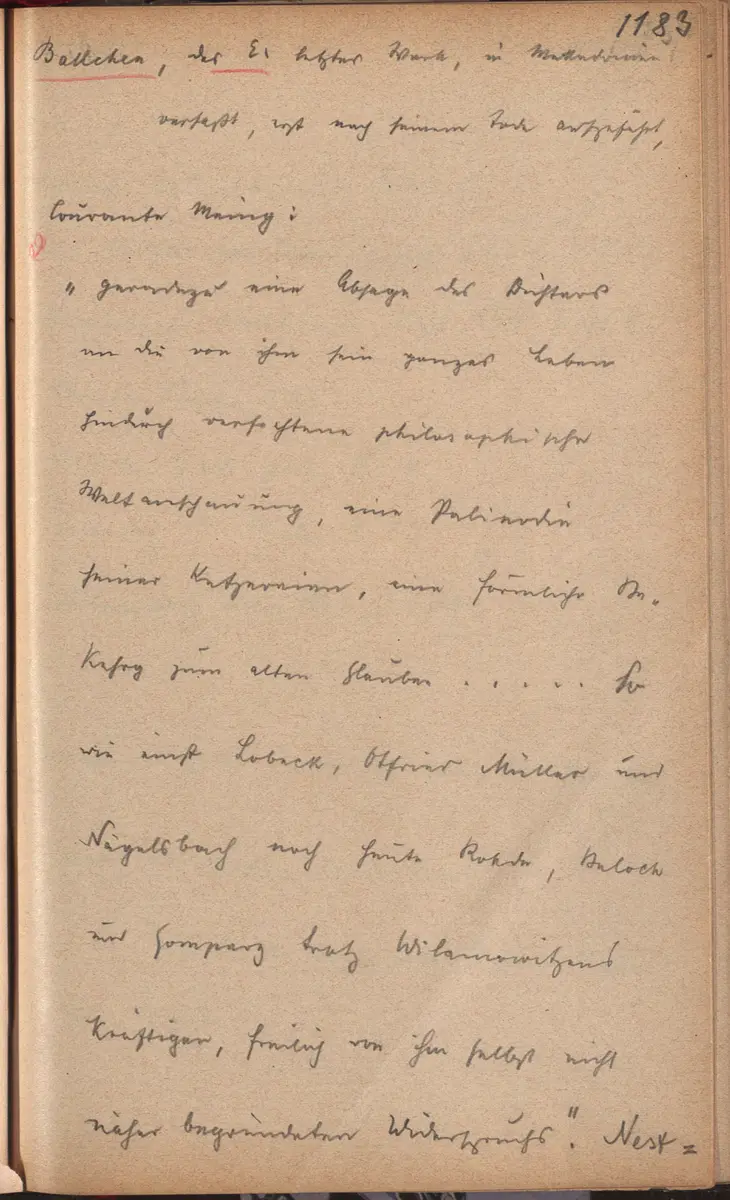 1183
Bakchen, des E. letztes Werk, in Makedonien
verfaßt, erst nach seinem Tode aufgeführt,
Courante Meing:
„geradezu eine Absage des Dichters
an die von ihm sein ganzes Leben
hindurch verfochtene philosophische
Weltanschauung, eine Palinodie
seiner Ketzereien, eine förmliche Be-
kehrg zum alten Glauben ..... So
wie einst Lobeck, Otfried Müller und
Nägelsbach noch heute Rohde, Beloch
und Gomperz trotz Wilamowitzens
kräftigen, freilich von ihm selbst nicht
näher begründeten Widerspruchs". Nest=